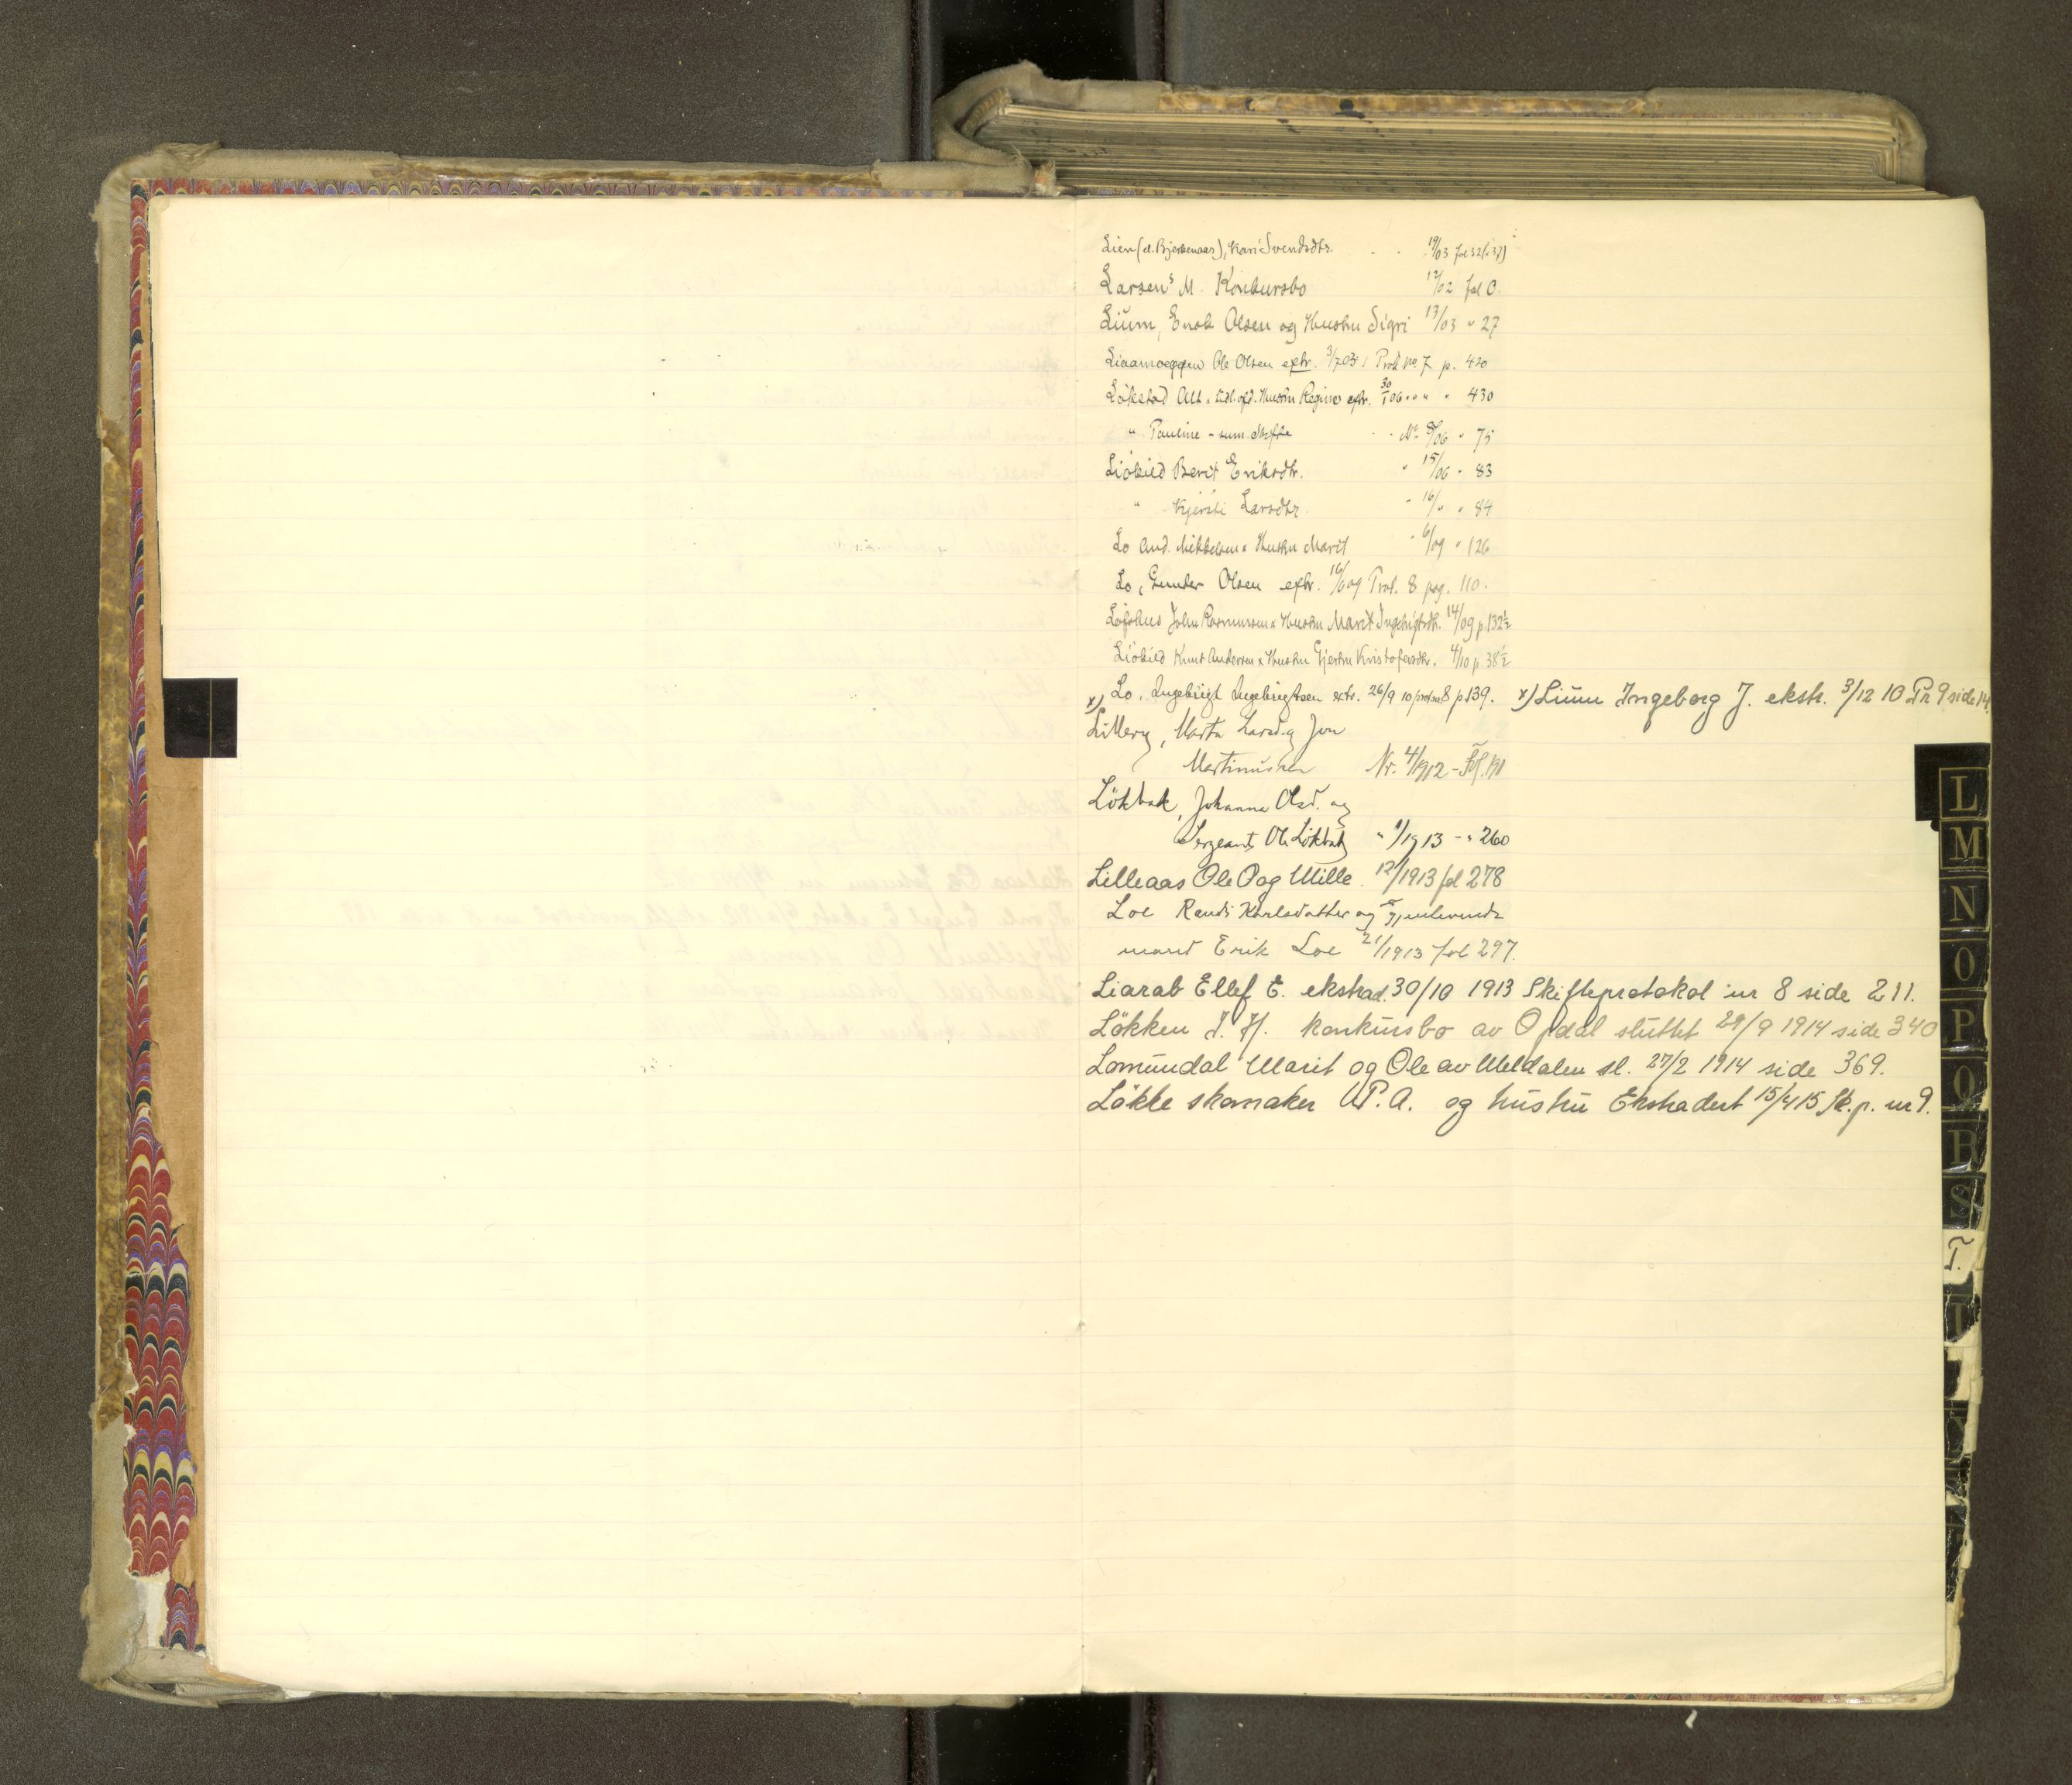 Lien (d. Bjerkenaas), Kari Svendsdtr. 19/03 fol 32 (& 37)
Larsens M. Konkursbo 12/02 fol 0.
Lium, Enok Olsen og Hustru Sigri 13/03 " 27
Liaamoeggen Ole Olsen extr. 3/7 03 Prot no. 7 p. 420
Lökstad Regine extr. 30/1 06 " " " 430
" Pauline - sum. Skifte Nr. 8/06 " 75
Liökild Berit Eriksdtr. " 15/06 " 83
" Kjersti Larsdtr. " 16/" " 84
Lo And. Mikkelsen & Hustru Marit " 6/09 " 126
Lo, Gunder Olsen extr. 16/6 09 Prot. 8 pag. 110.
Löfshus John Rasmussen & Hustru Marit Ingebrigtsdtr. 14/09 p. 132½
Liökild Knut Andersen & Hustru Gjertru Kristofersdtr. 4/10 p. 38½
x) Lo, Ingebrigt Ingebrigtsen extr. 26/9 10 prot nr 8 p 139. x) Lium Ingeborg J. ekstr. 3/12 10 Pr 9 side 14.
Marta Larsd. og Jon
Martinussen Nr. 4/1912 - Fol. 191
Lökbak, Johanna Olsd. og
Sergeant Ole Lökbak " 1/1913 - " 260
Lilleaas Ole O og Mille. 12/1913 fol 278
Loe Randi Karlsdatter og gjenlevende
mand Erik Loe 21/1913 fol 297.
Liarab Ellef E. ekstrad. 30/10 1913 Skifteprotokol nr 8 side 211.
Lökken J. H. konkursbo av Opdal sluttet 29/9 1914 side 340
Lomundal Marit og Ole av Meldalen sl. 27/2 1914 side 369.
Løkke skomaker P. A. og hustru Ekstradert 15/4 15 Sk. p. nr 9.
L
M
N
O
P
Q
R
S
T.
T